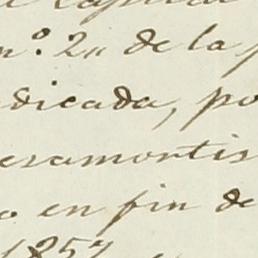 Capital
nº. 2„ de la
dicada, po
eramontis
o en fin de
1857